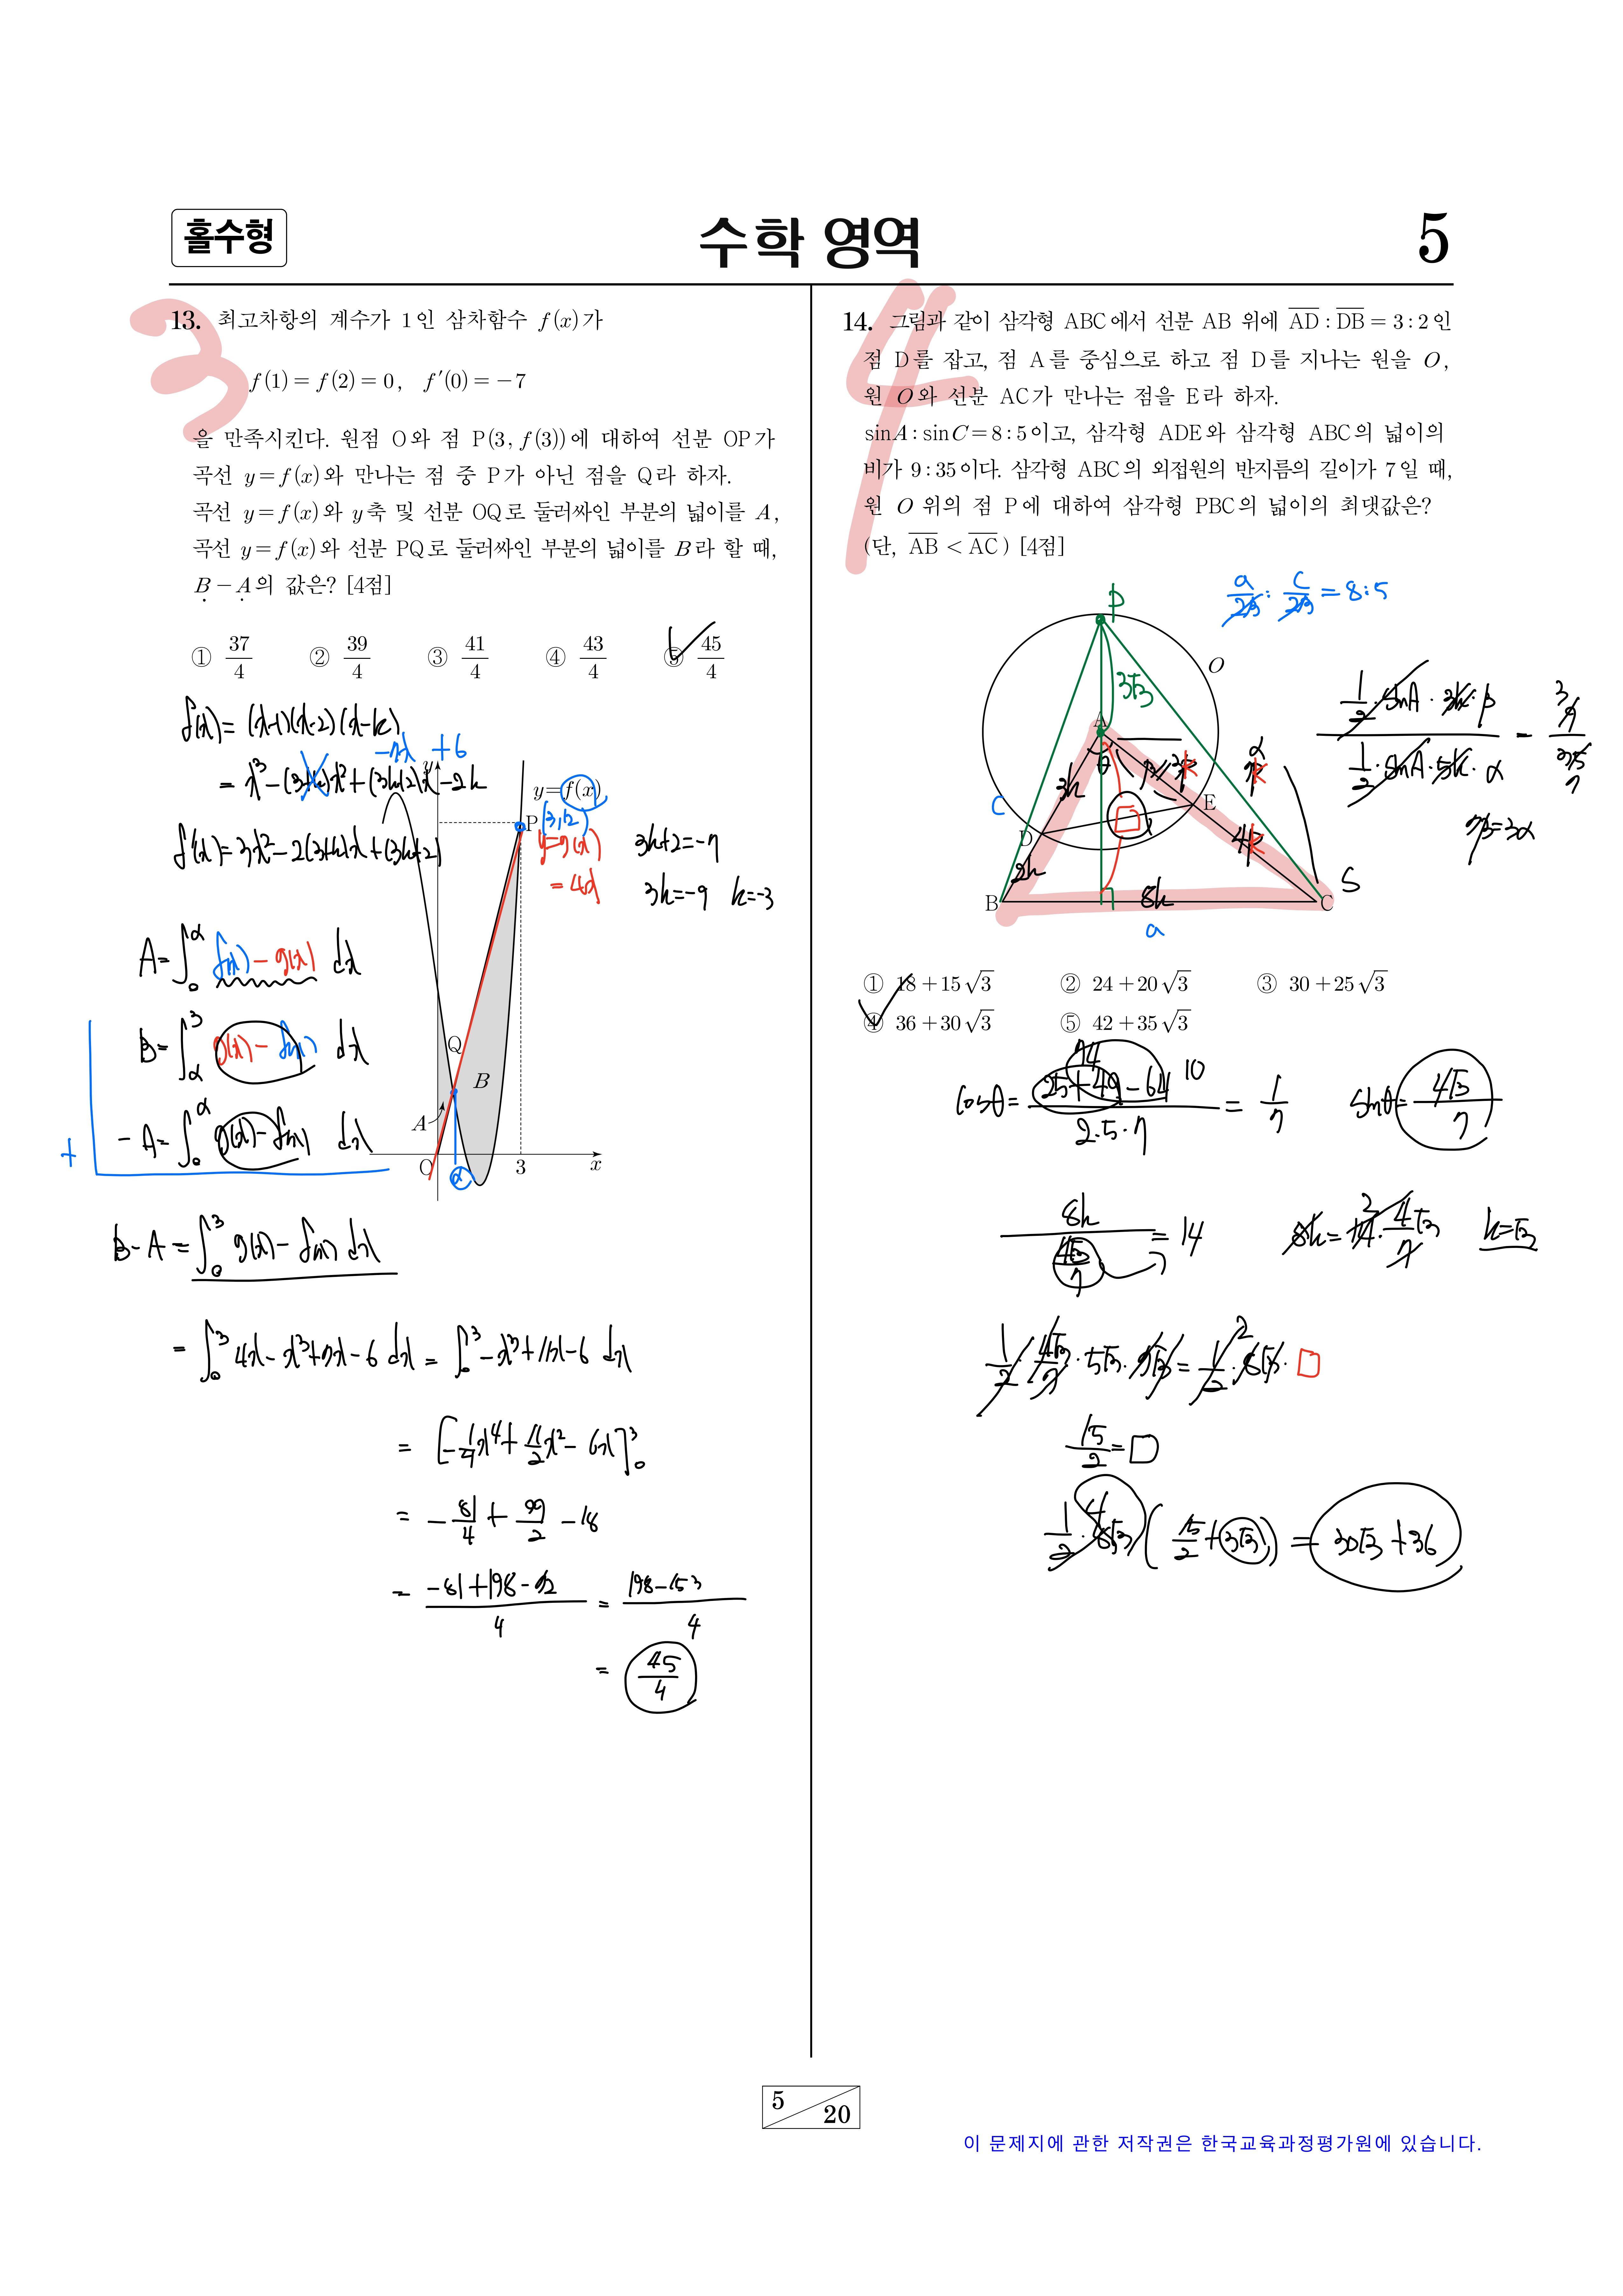 홀수형
수학 영역
5
3
13. 최고차항의 계수가 1인 삼차함수 f(x)가
f(1)=f(2)=0, f′(0)=-7
을 만족시킨다. 원점 O와 점 P(3, f(3))에 대하여 선분 OP가
곡선 y=f(x)와 만나는 점 중 P가 아닌 점을 Q라 하자.
곡선 y=f(x)와 y축 및 선분 OQ로 둘러싸인 부분의 넓이를 A,
곡선 y=f(x)와 선분 PQ로 둘러싸인 부분의 넓이를 B라 할 때,
B-A의 값은? [4점]
① 37/4 ② 39/4 ③ 41/4 ④ 43/4 ⑤ 45/4
f(x)= (x-1)(x-2)(x-k)
-7x +6
= x³-(3+k)x²+(3k+2)x-2k
f'(x)=3x²-2(3+k)x+(3k+2)
y
y=f(x)
P (3,12)
y=g(x)
= 4x
3k+2=-7
3k=-9 k=-3
Q
B
A
O
α
3
x
A=∫₀^α f(x)-g(x) dx
B=∫_α^3 g(x)-f(x) dx
+
-A=∫₀^α g(x)-f(x) dx
B-A=∫₀³ g(x)-f(x) dx
=∫₀³ 4x-x³+7x-6 dx = ∫₀³ -x³+11x-6 dx
= [-1/4 x⁴+11/2 x²-6x]₀³
= -81/4 + 99/2 -18
= (-81+198-72)/4 = (198-153)/4
= 45/4
4
14. 그림과 같이 삼각형 ABC에서 선분 AB 위에 AD:DB=3:2인
점 D를 잡고, 점 A를 중심으로 하고 점 D를 지나는 원을 O,
원 O와 선분 AC가 만나는 점을 E라 하자.
sinA:sinC=8:5이고, 삼각형 ADE와 삼각형 ABC의 넓이의
비가 9:35이다. 삼각형 ABC의 외접원의 반지름의 길이가 7일 때,
원 O 위의 점 P에 대하여 삼각형 PBC의 넓이의 최댓값은?
(단, AB<AC) [4점]
a/2R : c/2R = 8:5
P
O
3√3
A
θ
3k
c
E
D
4k
2k
B
8k
C
S
a
α
① 18+15√3 ② 24+20√3 ③ 30+25√3
④ 36+30√3 ⑤ 42+35√3
cosθ= (25+49-64)/(2·5·7) = 1/7 sinθ= 4√3/7
74
10
8k/(4√3/7) = 14 8k=14·4/7√3 k=√3
1/2·4√3/7·5√3·7√3=1/2·8√3·□
15/2=□
1/2·8√3(15/2+3√3) = 30√3+36
5
20
이 문제지에 관한 저작권은 한국교육과정평가원에 있습니다.